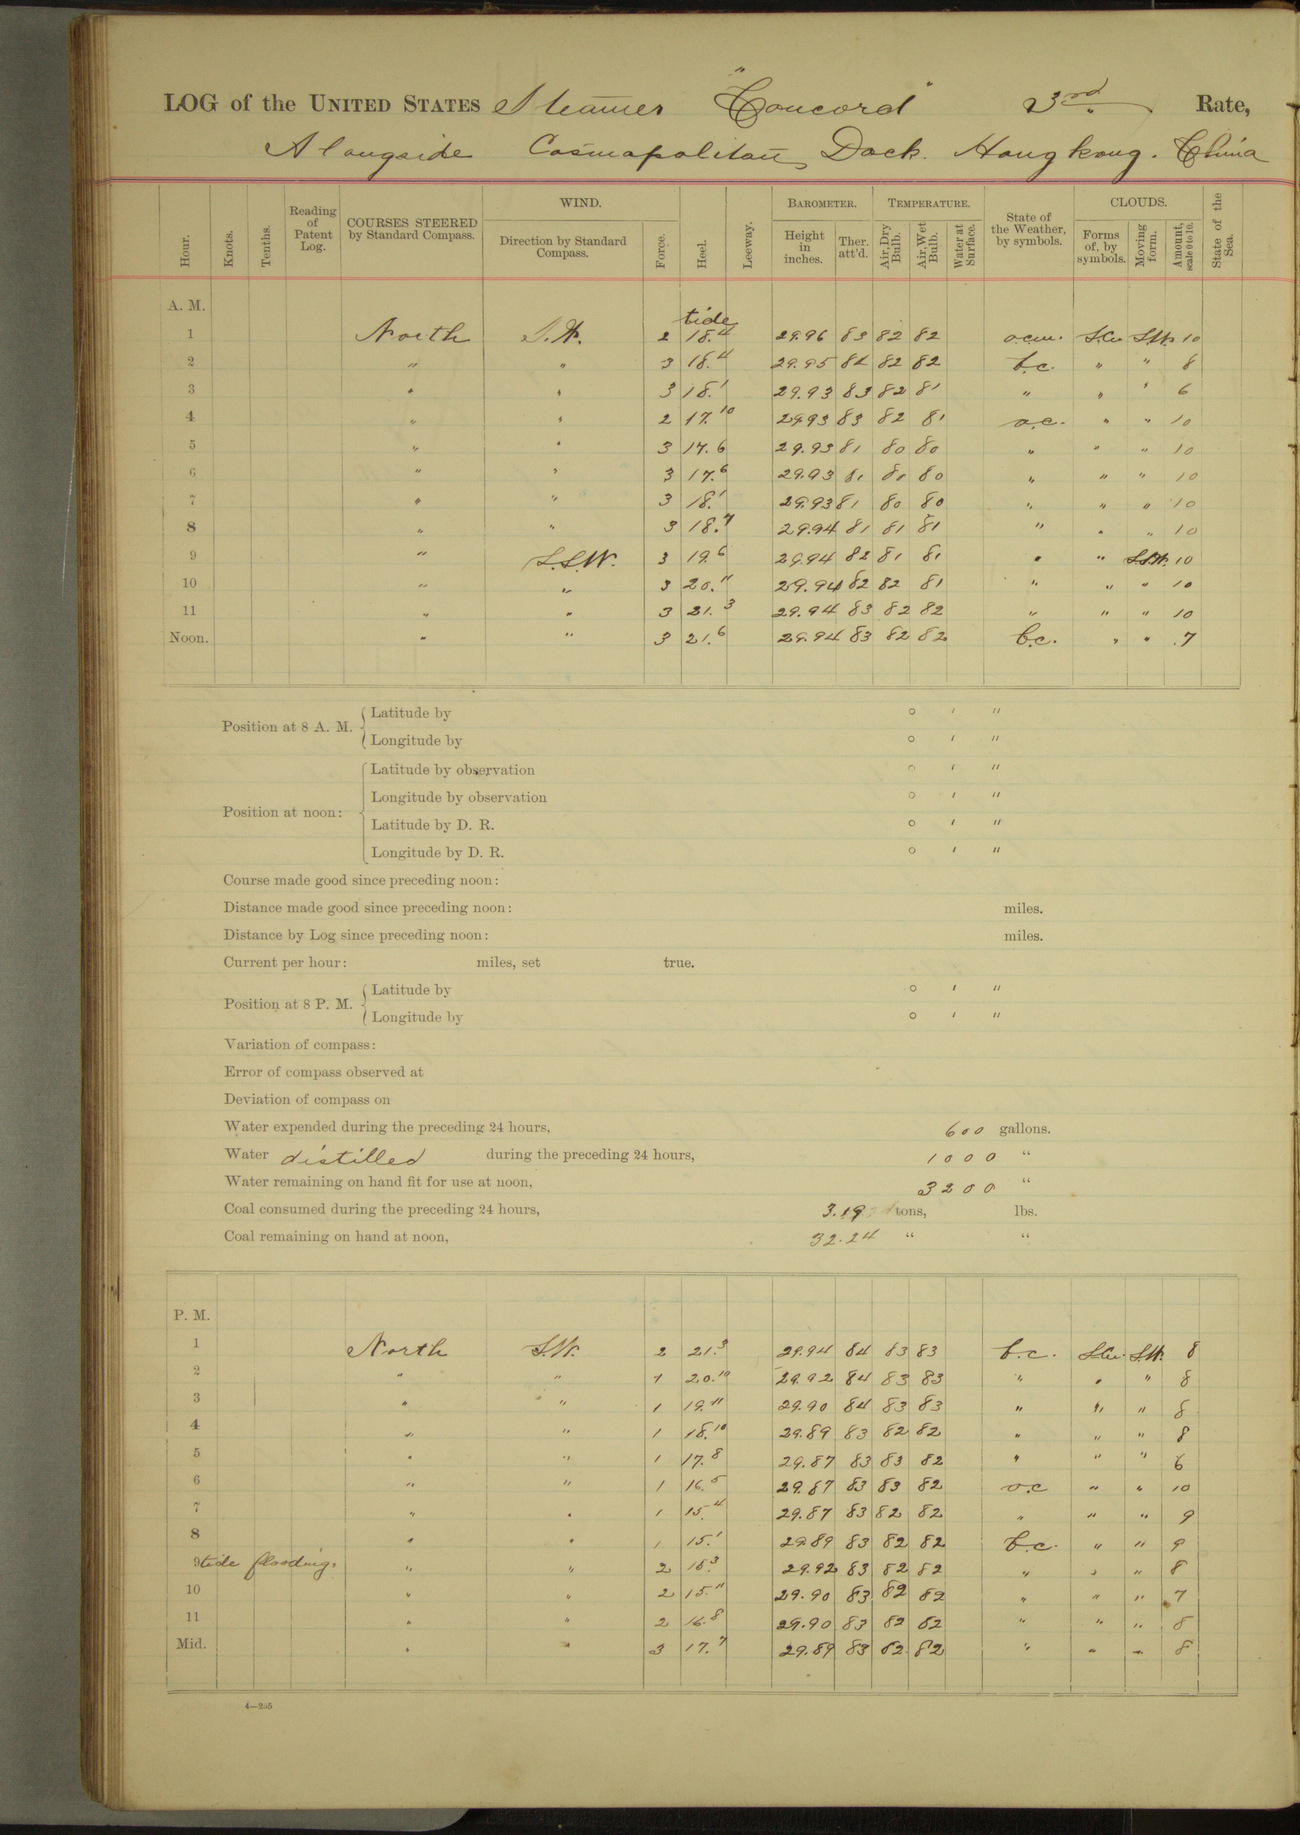 LOG of the UNITED STATES Steamer "Concord" 3rd Rate,
Alongside Cosmopolitan Dock. Hongkong. China
Hour. Knots. Tenths. Reading of Patent Log. COURSES STEERED by Standard Compass. WIND. Direction by Standard Compass. Force. Heel. Leeway. BAROMETER. Height in inches. Ther. att'd. TEMPERATURE. Air, Dry Bulb. Air, Wet Bulb. Water at Surface. State of the Weather, by symbols. CLOUDS. Forms of, by symbols. Moving form. Amount, scale 0 to 10. State of the Sea.
A. M. tide
1 North S.W. 2 18.4 29.96 83 82 82 S.Cu. S.W. 10
2 " " 3 18.4 29.95 82 82 b.c. " " 8
3 " " 3 18.1 29.93 83 82 81 " " " 6
4 " " 2 17.10 29.93 83 82 81 o.c. " " 10
5 " " 3 17.6 29.93 81 80 80 " " " 10
6 " " 3 17.6 29.93 81 80 80 " " " 10
7 " " 3 18.1 29.93 81 80 80 " " " 10
8 " " 3 18.7 29.94 81 81 81 " " " 10
9 " S.S.W. 3 19.6 29.94 82 81 81 " " S.S.W. 10
10 " " 3 20.11 29.94 82 82 81 " " " 10
11 " " 3 21.3 29.94 83 82 82 " " " 10
Noon. " " 3 21.6 29.94 83 82 82 b.c. " " 7
Position at 8 A. M. Latitude by ° ' "
Longitude by ° ' "
Position at noon: Latitude by observation ° ' "
Longitude by observation ° ' "
Latitude by D. R. ° ' "
Longitude by D. R. ° ' "
Course made good since preceding noon:
Distance made good since preceding noon: miles.
Distance by Log since preceding noon: miles.
Current per hour: miles, set true.
Position at 8 P. M. Latitude by ° ' "
Longitude by ° ' "
Variation of compass:
Error of compass observed at
Deviation of compass on
Water expended during the preceding 24 hours, 600 gallons.
Water distilled during the preceding 24 hours, 1000 "
Water remaining on hand fit for use at noon, 3200 "
Coal consumed during the preceding 24 hours, 3.19 tons, lbs.
Coal remaining on hand at noon, 32.24 " "
P. M.
1 North S.W. 2 21.3 29.94 84 83 83 b.c. S.Cu. S.W. 8
2 " " 1 20.10 29.92 84 83 83 " " " 8
3 " " 1 19.11 29.90 84 83 83 " " " 8
4 " " 1 18.10 29.89 83 82 82 " " " 8
5 " " 1 17.8 29.87 83 83 82 " " " 6
6 " " 1 16.5 29.87 83 83 82 o.c " " 10
7 " " 1 15.4 29.87 83 82 82 " " " 9
8 " " 1 15.1 29.89 83 82 82 b.c. " " 9
9 tide flooding. " " 2 15.3 29.92 83 82 82 " " " 8
10 " " 2 15.11 29.90 83 82 82 " " " 7
11 " " 2 16.8 29.90 83 82 82 " " " 8
Mid. " " 3 17.7 29.89 83 82 82 " " " 8
4—205